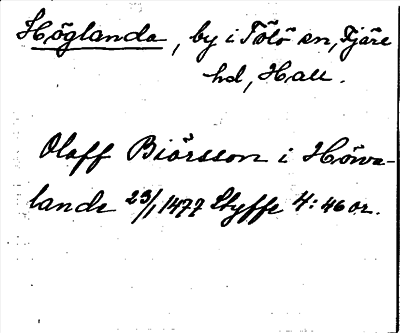 Höglanda, by i Tölö sn, Fjäre
hd, Hall.
Olaff Biörsson i Höwa-
lande 23/1 1477 Styffe 4: 46 or.